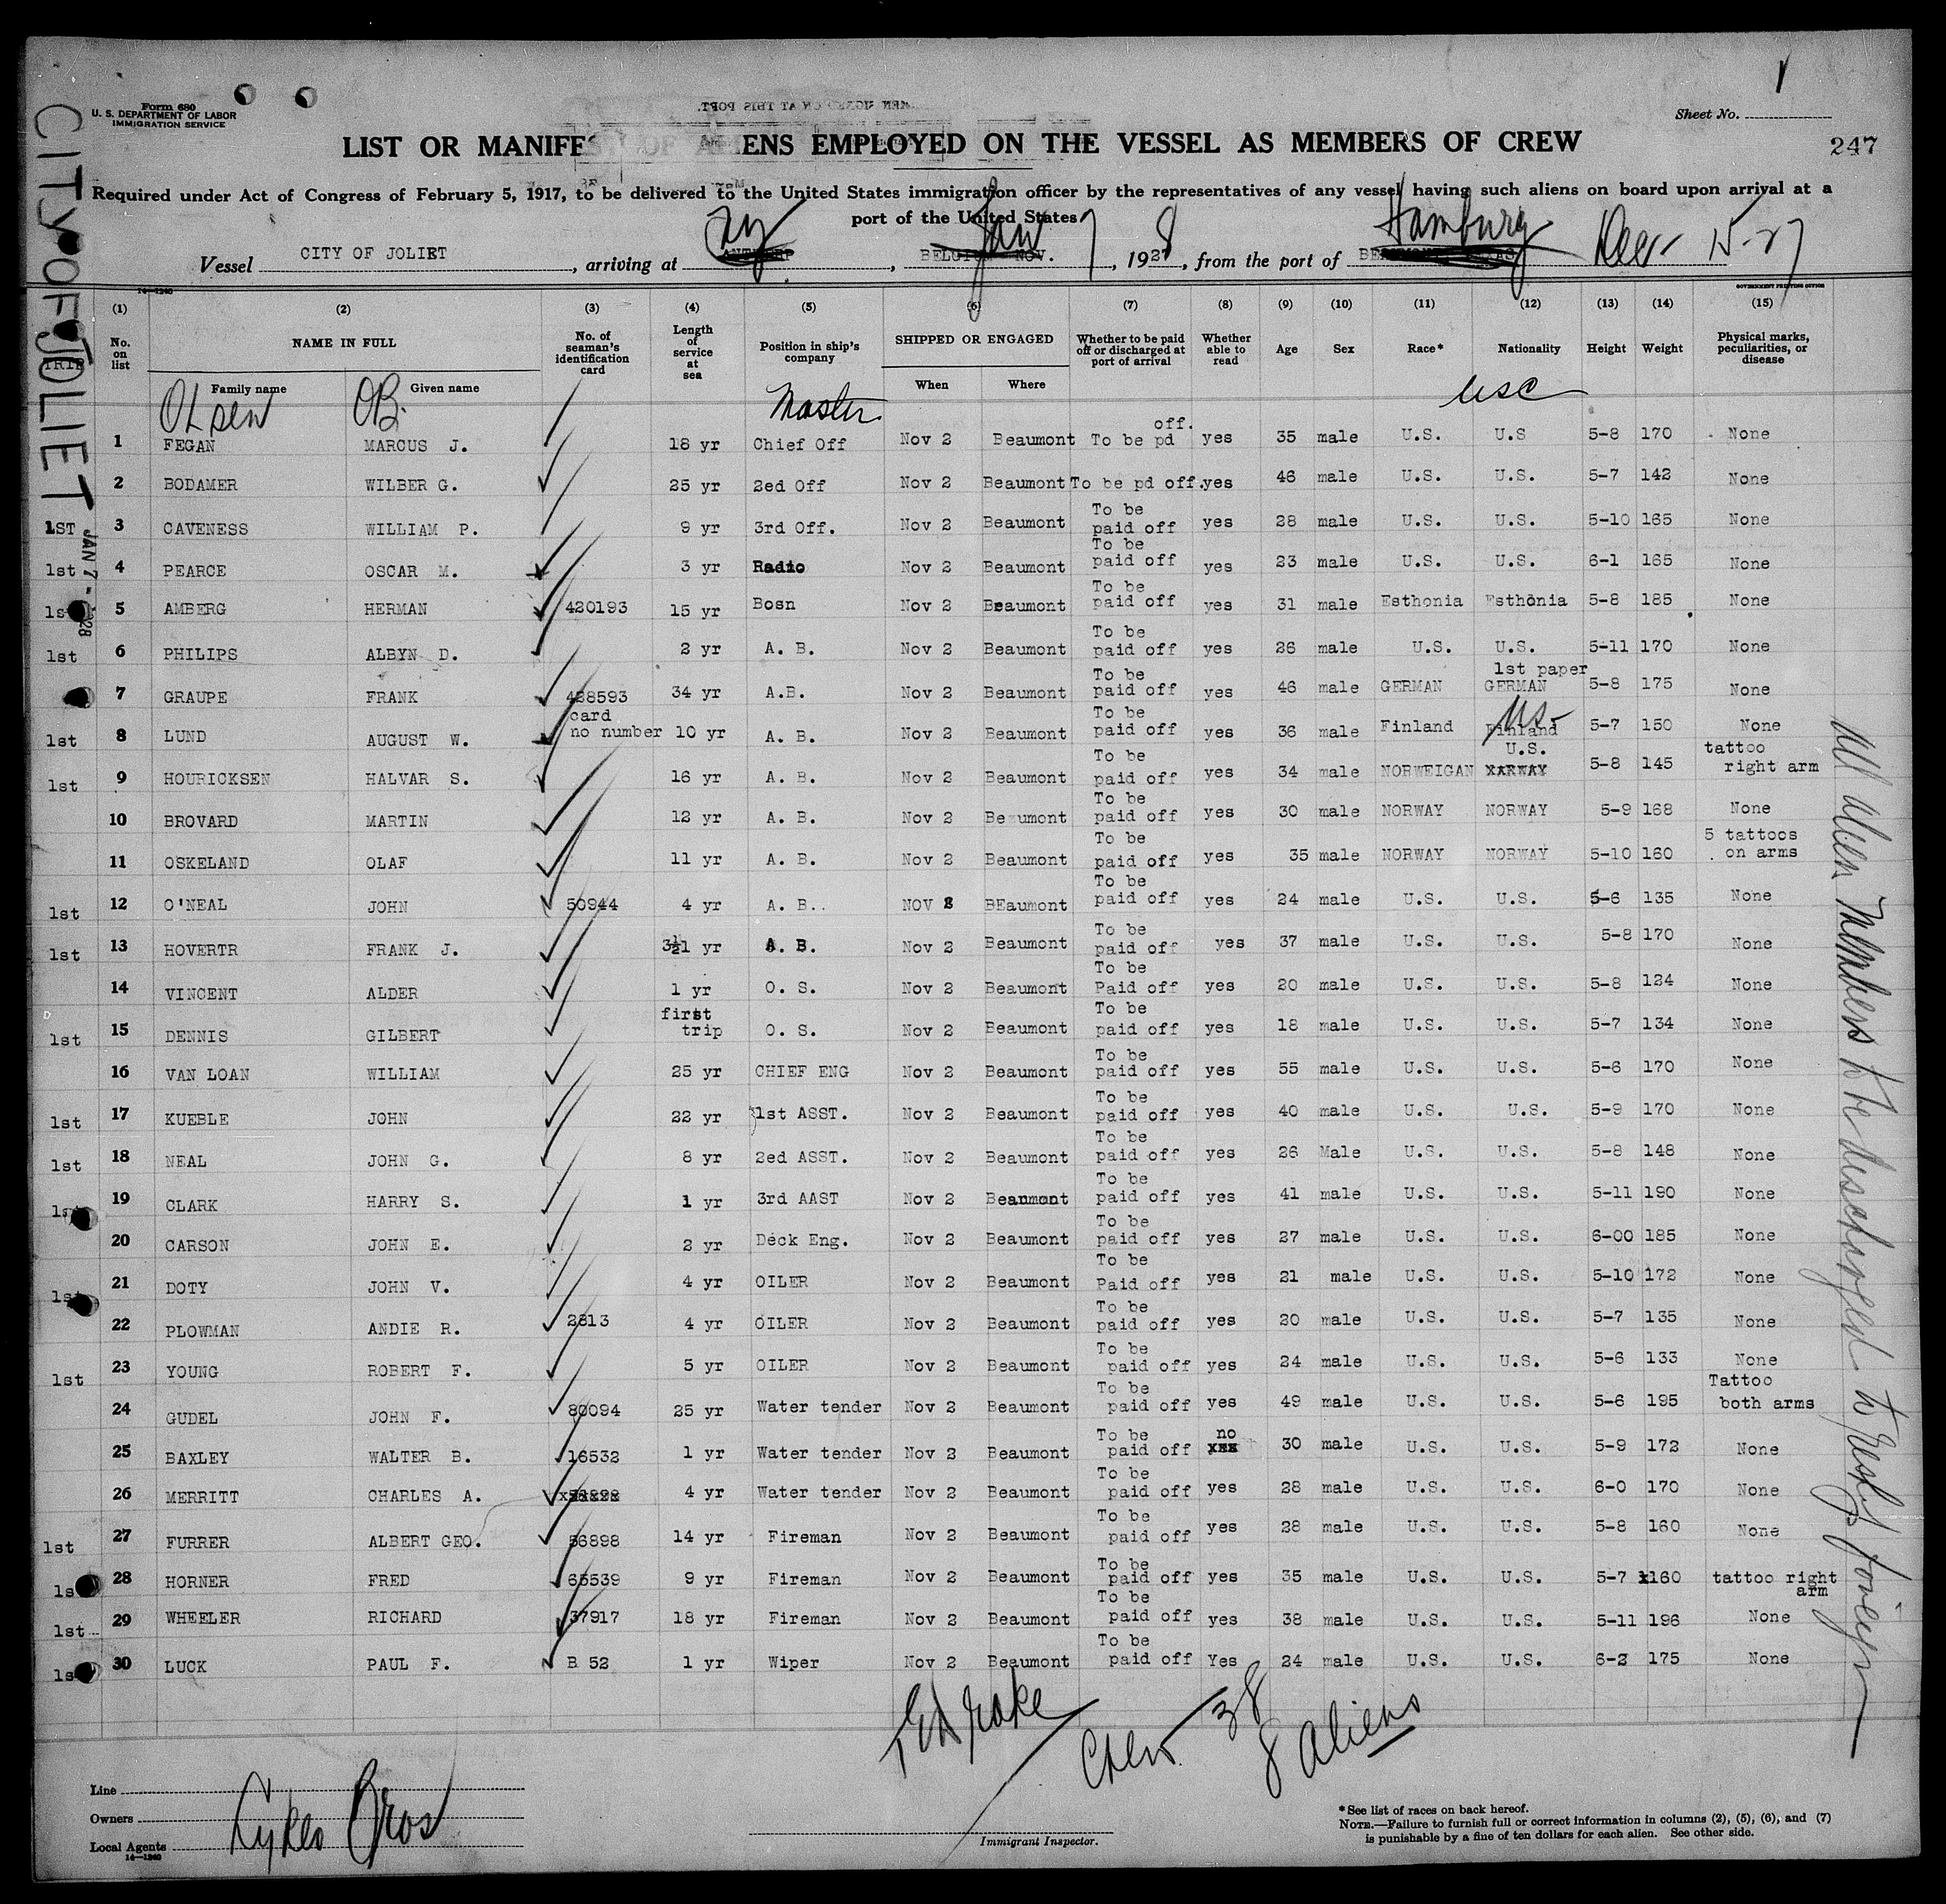 1
Form 680
U. S. DEPARTMENT OF LABOR
IMMIGRATION SERVICE
Sheet No.
LIST OR MANIFEST OF ALIENS EMPLOYED ON THE VESSEL AS MEMBERS OF CREW
247
Required under Act of Congress of February 5, 1917, to be delivered to the United States immigration officer by the representatives of any vessel having such aliens on board upon arrival at a
port of the United States
Vessel CITY OF JOLIET, arriving at ANTWERP, BELGIUM NOV. Jan 7, 1928, from the port of BEAUMONT TEXAS Hamburg Dec 15-27
14—1240 GOVERNMENT PRINTING OFFICE
(1) (2) (3) (4) (5) (6) (7) (8) (9) (10) (11) (12) (13) (14) (15)
No. on list NAME IN FULL No. of seaman's identification card Length of service at sea Position in ship's company SHIPPED OR ENGAGED Whether to be paid off or discharged at port of arrival Whether able to read Age Sex Race* Nationality Height Weight Physical marks, peculiarities, or disease
TRIP Family name Given name When Where
Olsen OB. Master usc
1 FEGAN MARCUS J. 18 yr Chief Off Nov 2 Beaumont To be pd off. yes 35 male U.S. U.S 5-8 170 None
2 BODAMER WILBER G. 25 yr 2ed Off Nov 2 Beaumont To be pd off. yes 46 male U.S. U.S. 5-7 142 None
1ST 3 CAVENESS WILLIAM P. 9 yr 3rd Off. Nov 2 Beaumont To be paid off yes 28 male U.S. U.S. 5-10 165 None
1st 4 PEARCE OSCAR M. 3 yr Radio Nov 2 Beaumont To be paid off yes 23 male U.S. U.S. 6-1 165 None
1st 5 AMBERG HERMAN 420193 15 yr Bosn Nov 2 Beaumont To be paid off yes 31 male Esthonia Esthonia 5-8 185 None
1st 6 PHILIPS ALBYN D. 2 yr A. B. Nov 2 Beaumont To be paid off yes 26 male U.S. U.S. 5-11 170 None
7 GRAUPE FRANK 428593 34 yr A.B. Nov 2 Beaumont To be paid off yes 46 male GERMAN 1st paper GERMAN 5-8 175 None
1st 8 LUND AUGUST W. card no number 10 yr A. B. Nov 2 Beaumont To be paid off yes 36 male Finland Finland US- 5-7 150 None
1st 9 HOURICKSEN HALVAR S. 16 yr A. B. Nov 2 Beaumont To be paid off yes 34 male NORWEIGAN U.S. XARWAY 5-8 145 tattoo right arm
10 BROVARD MARTIN 12 yr A. B. Nov 2 Beaumont To be paid off yes 30 male NORWAY NORWAY 5-9 168 None
11 OSKELAND OLAF 11 yr A. B. Nov 2 Beaumont To be paid off yes 35 male NORWAY NORWAY 5-10 160 5 tattoos on arms
1st 12 O'NEAL JOHN 50944 4 yr A. B.. NOV 2 BEaumont To be paid off yes 24 male U.S. U.S. 5-6 135 None
1st 13 HOVERTR FRANK J. 3½ yr A. B. Nov 2 Beaumont To be paid off yes 37 male U.S. U.S. 5-8 170 None
14 VINCENT ALDER 1 yr O. S. Nov 2 Beaumont To be Paid off yes 20 male U.S. U.S. 5-8 124 None
1st 15 DENNIS GILBERT first trip O. S. Nov 2 Beaumont To be paid off yes 18 male U.S. U.S. 5-7 134 None
16 VAN LOAN WILLIAM 25 yr CHIEF ENG Nov 2 Beaumont To be paid off yes 55 male U.S. U.S. 5-6 170 None
1st 17 KUEBLE JOHN 22 yr 1st ASST. Nov 2 Beaumont To be paid off yes 40 male U.S. U.S. 5-9 170 None
1st 18 NEAL JOHN G. 8 yr 2ed ASST. Nov 2 Beaumont To be paid off yes 26 Male U.S. U.S. 5-8 148 None
1st 19 CLARK HARRY S. 1 yr 3rd AAST Nov 2 Beaumont To be paid off yes 41 male U.S. U.S. 5-11 190 None
20 CARSON JOHN E. 2 yr Deck Eng. Nov 2 Beaumont To be paid off yes 27 male U.S. U.S. 6-00 185 None
1st 21 DOTY JOHN V. 4 yr OILER Nov 2 Beaumont To be Paid off yes 21 male U.S. U.S. 5-10 172 None
22 PLOWMAN ANDIE R. 2813 4 yr OILER Nov 2 Beaumont To be paid off yes 20 male U.S. U.S. 5-7 135 None
1st 23 YOUNG ROBERT F. 5 yr OILER Nov 2 Beaumont To be paid off yes 24 male U.S. U.S. 5-6 133 None
24 GUDEL JOHN F. 80094 25 yr Water tender Nov 2 Beaumont To be paid off yes 49 male U.S. U.S. 5-6 195 Tattoo both arms
25 BAXLEY WALTER B. 16532 1 yr Water tender Nov 2 Beaumont To be paid off no 30 male U.S. U.S. 5-9 172 None
26 MERRITT CHARLES A. 4 yr Water tender Nov 2 Beaumont To be paid off yes 28 male U.S. U.S. 6-0 170 None
1st 27 FURRER ALBERT GEO. 56898 14 yr Fireman Nov 2 Beaumont To be paid off yes 28 male U.S. U.S. 5-8 160 None
1st 28 HORNER FRED 65539 9 yr Fireman Nov 2 Beaumont To be paid off yes 35 male U.S. U.S. 5-7 160 tattoo right arm
1st 29 WHEELER RICHARD 37917 18 yr Fireman Nov 2 Beaumont To be paid off yes 38 male U.S. U.S. 5-11 196 None
1st 30 LUCK PAUL F. B 52 1 yr Wiper Nov 2 Beaumont To be paid off Yes 24 male U.S. U.S. 6-2 175 None
CITY OF JOLIET
JAN 7 - 1928
All alien members to be discharged to reship foreign
Drake
Crew 38
8 aliens
Line
Owners
Local Agents
Lykes Bros
14—1240
Immigrant Inspector.
*See list of races on back hereof.
NOTE.—Failure to furnish full or correct information in columns (2), (5), (6), and (7)
is punishable by a fine of ten dollars for each alien. See other side.